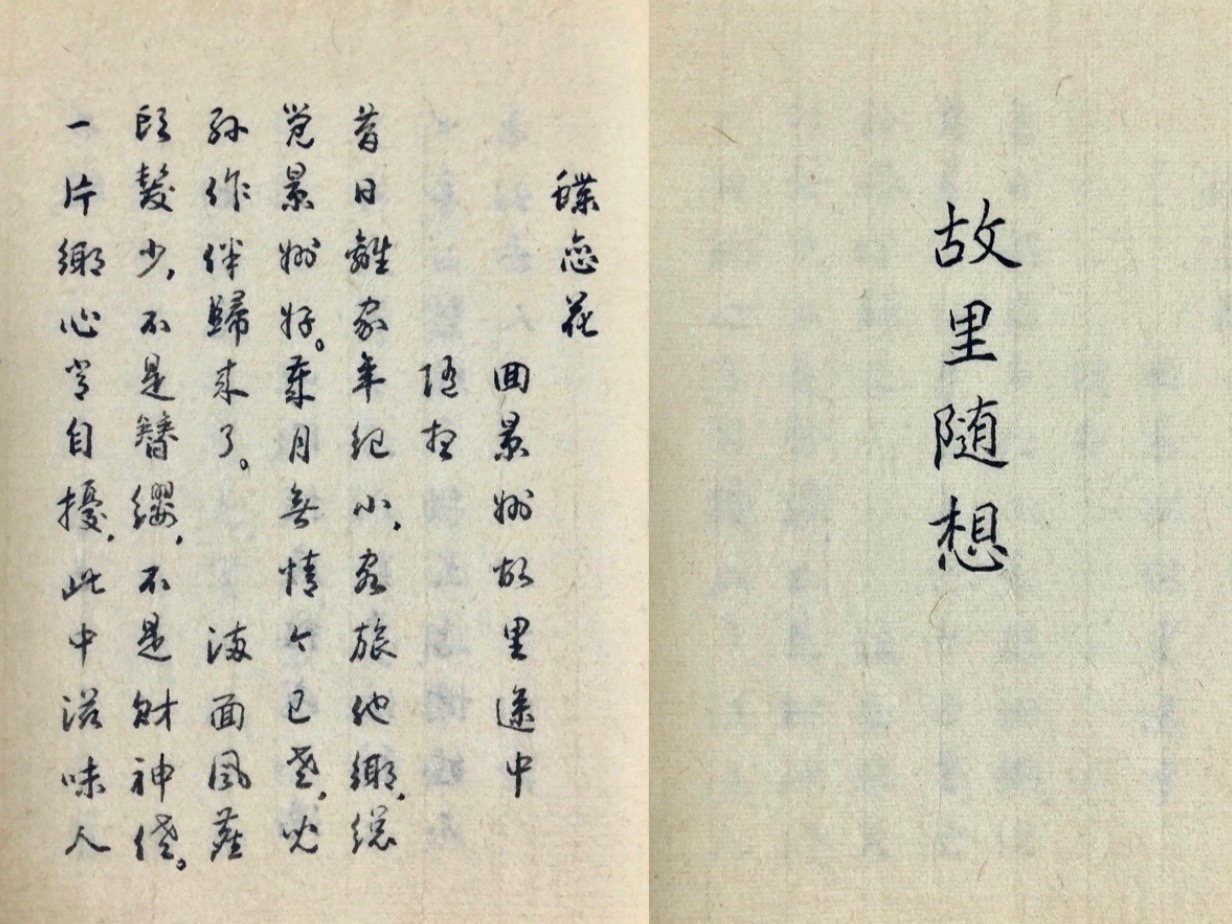 故里随想
蝶恋花
囬景州故里途中
昔日離家年紀小，客旅他鄉，總
覚景州好。歲月無情今已老，兒
孫作伴歸來了。 满面風塵
頭髮少，不是簪纓，不是財神佬。
一片鄉心常自擾，此中滋味人